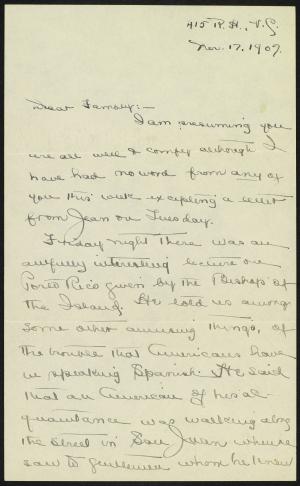 415 R. H., V. C.
Nov. 17, 1907.
Dear Family:-
I am presuming you
are all well & comfy although I
have had no word from any of
you this week excepting a letter
from Jean on Tuesday.
Friday night there was an
awfully interesting lecture on
Porto Rico given by the Bishop of
the Island. He told us among
some other amusing things, of
the trouble that Americans have
in speaking Spanish. He said
that an American of his ac-
quaintance was walking along
the street in San Juan when he
saw to gentlemen whom he knew